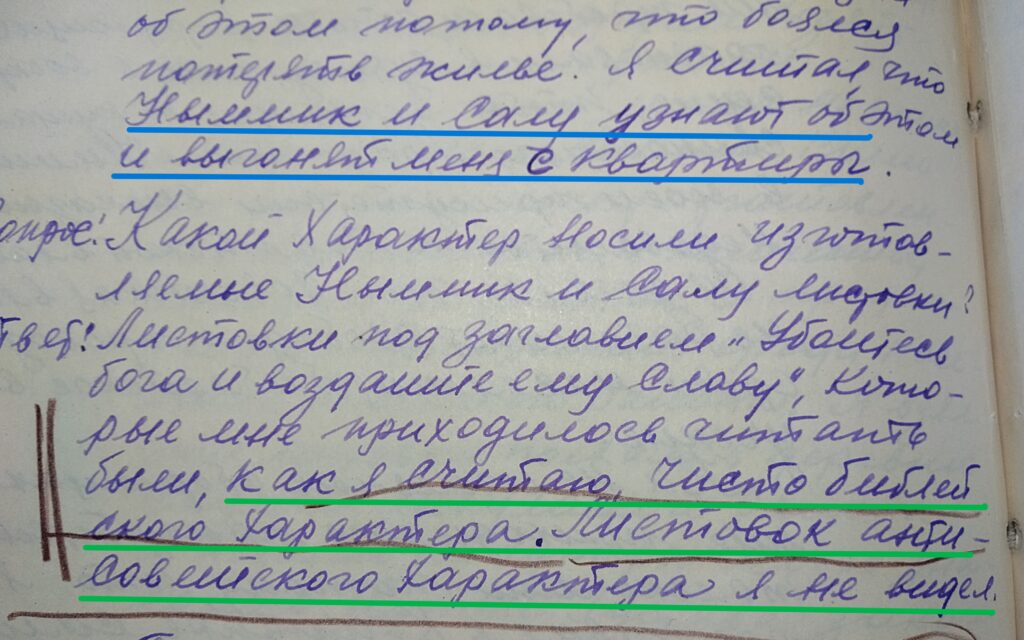 об этом потому, что боялся
потерять жилье. Я считал, что
Ныммик и Салу узнают об этом
и выгонят меня с квартиры.
опрос: Какой характер носили изготов-
ляемые Ныммик и Салу листовки?
твет: Листовки под заглавием "Убойтесь
бога и воздайте ему славу", кото-
рые мне приходилось читать
были, как я считаю, чисто библей
ского характера. Листовок анти-
советского характера я не видел.